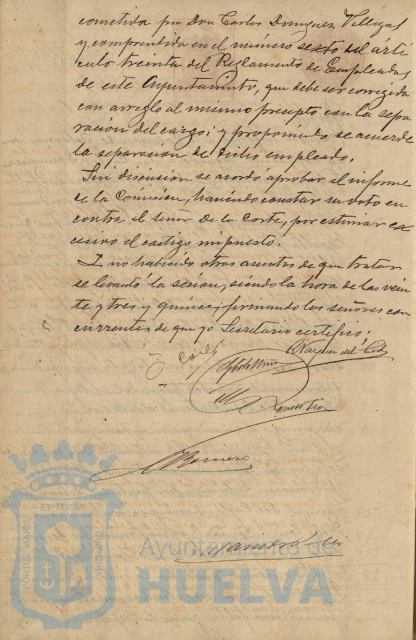 cometida por Don Carlos Dominguez Villegas
y comprendida en el número sexto del artí-
culo treinta del Reglamento de Empleados
de este Ayuntamiento, que debe ser corregida
con arreglo al mismo precepto con la sepa-
ración del cargo; y proponiendo se acuerde
la separación de dicho empleado.
Sin discusion se acordo aprobar el informe
de la Comisión, haciendo constar su voto en
contra el señor de la Corte, por estimar ex-
cesivo el castigo impuesto.
I no habiendo otros asuntos de que tratar
se levantó la sesion, siendo la hora de las vein-
te y tres y quince; firmando los señores con-
currentes de que yo Secretario certifico.
Ayuntamiento de
HUELVA